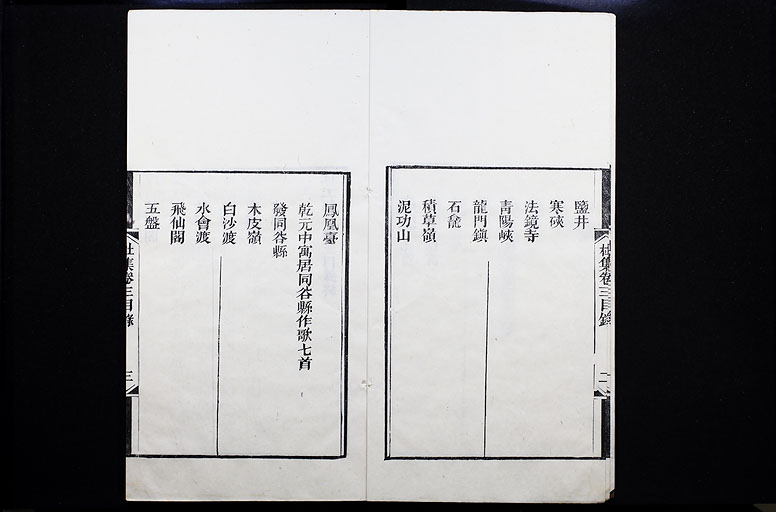 鹽井
寒硤
法鏡寺
青陽峽
龍門鎮
石龕
積草嶺
泥功山
杜集卷三目錄
二
鳳凰臺
乾元中寓居同谷縣作歌七首
發同谷縣
木皮嶺
白沙渡
水會渡
飛仙閣
五盤
杜集卷三目錄
三